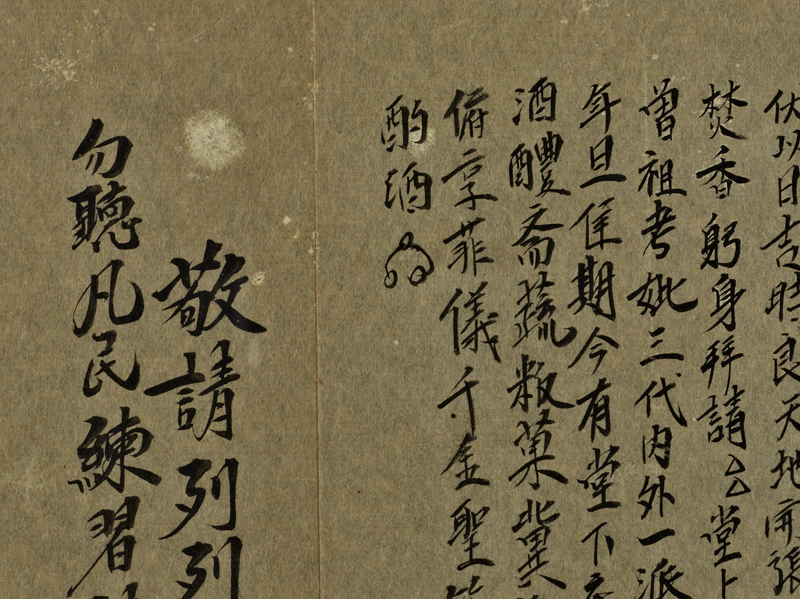 伏以日吉時良天地開張
焚香躬身拜請厶堂上
曾祖考妣三代内外一派
年旦侄期今有堂下
酒醴斋蔬粄菓冀
俻享菲儀千金聖
酌酒
敬請列列
勿聽凡民練習